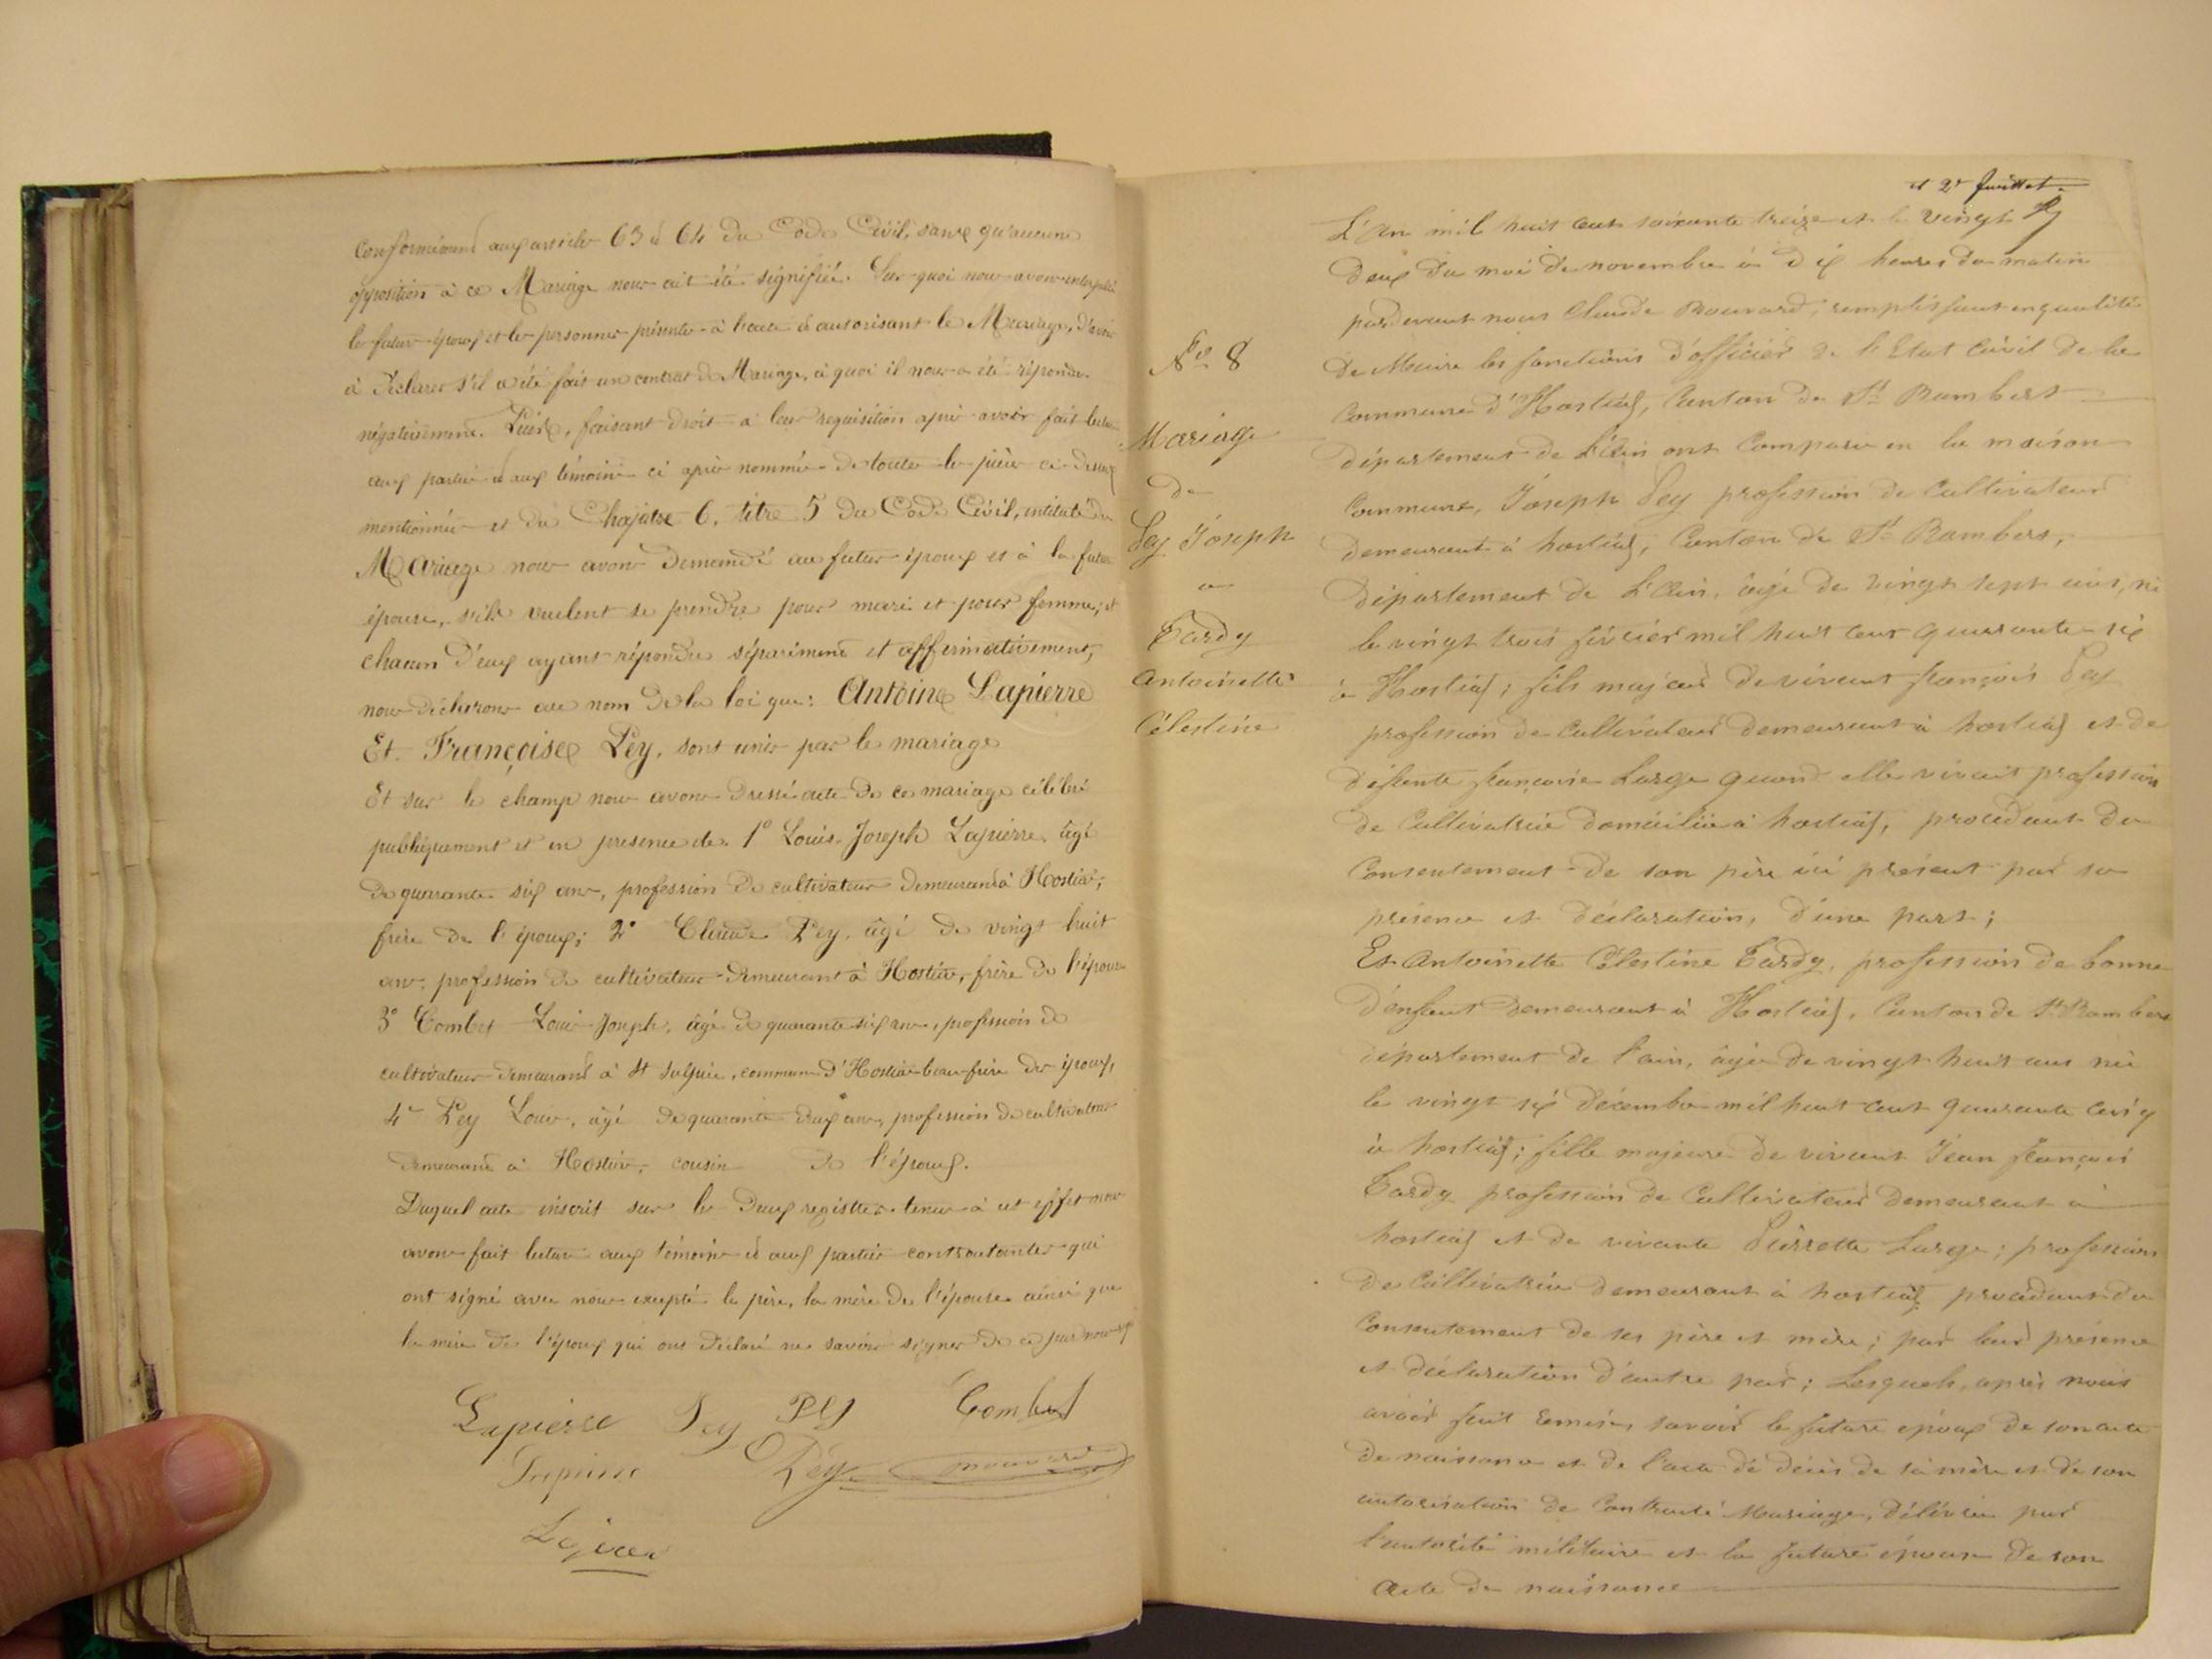 Conformément aux articles 63 et 64 du Code Civil, sans qu'aucune
opposition à ce Mariage nous ait été signifiée. Sur quoi nous avons interpellé
les futurs époux et les personnes présentes à l'acte et autorisant le Mariage, d'avoir
à déclarer s'il a été fait un contrat de Mariage, à quoi il nous a été répondu
négativement. Puis, faisant droit à leur requisition après avoir fait lecture
aux parties et aux témoins ci après nommés de toutes les pièces ci-dessus
mentionnées et du Chapitre 6, titre 5 du Code Civil, intitulé du
Mariage nous avons demandé au futur époux et à la future
épouse, s'ils veulent se prendre pour mari et pour femme, et
chacun d'eux ayant répondu séparément et affirmativement,
nous déclarons au nom de la loi que: Antoine Lapierre
Et Françoise Pey, sont unis par le mariage
Et sur le champ nous avons dressé acte de ce mariage célébré
publiquement et en presence de 1° Louis Joseph Lapierre, âgé
de quarante six ans, profession de cultivateur demeurant à Hostias,
frère de l'époux; 2° Claude Pey, âgé de vingt huit
ans, profession de cultivateur demeurant à Hostias, frère de l'épouse
3° Combet Louis Joseph, âgé de quarante six ans, profession de
cultivateur demeurant à St Sulpice, commune d'Hostias beau-frère des époux,
4° Pey Louis, âgé de quarante deux ans, profession de cultivateur
demeurant à Hostias, cousin de l'époux.
Duquel acte inscrit sur les deux registres tenus à cet effet nous
avons fait lecture aux témoins et aux parties contractantes qui
ont signé avec nous excepté le père, la mère de l'épouse ainsi que
la mère de l'époux qui ont déclaré ne savoir signer de ce par nous
Lapierre Pey Pey Combet
Lapierre Pey
et 2e feuillet
L'An mil huit cent soixante treize et le vingt
deux du moi de novembre à dix heures du matin
pardevant nous Claude Bouvard, remplissant en qualité
de Maire les fonctions d'officier de l'Etat Civil de la
Commune d'Hostias, Canton de St Rambert
département de L'Ain ont Comparu en la maison
Commune, Joseph Pey profession de Cultivateur
demeurant à hostias, Canton de St Rambert,
département de L'Ain, âgé de vingt sept ans, né
le vingt trois février mil huit cent quarante-six
à Hostias; fils majeur de vivant françois Pey
profession de Cultivateur demeurant à hostias et de
défunte françoise Large quand elle vivait profession
de Cultivatrice domiciliée à hostias, procédant du
Consentement de son père ici présent par sa
présence et déclaration, d'une part;
Et Antoinette Célestine Tardy, profession de bonne
d'enfant demeurant à Hostias, Canton de St Rambert
département de l'ain, âgée de vingt huit ans née
le vingt six décembre mil huit cent quarante cinq
à hostias; fille majeure de vivant Jean françois
Tardy profession de Cultivateur demeurant à
hostias et de vivante Pierrette Large; profession
de Cultivatrice demeurant à hostias procédant du
Consentement de ses père et mère; par leur présence
et déclaration d'autre part; Lesquels, après nous
avoir fait remise, savoir le future époux de son acte
de naissance et de l'acte de décès de sa mère et de son
autorisation de Contracté Mariage, délivrée par
l'autorité militaire et la future épouse de son
Acte de naissance
No 8
Mariage
de
Pey Joseph
a
Tardy
Antoinette
Célestine